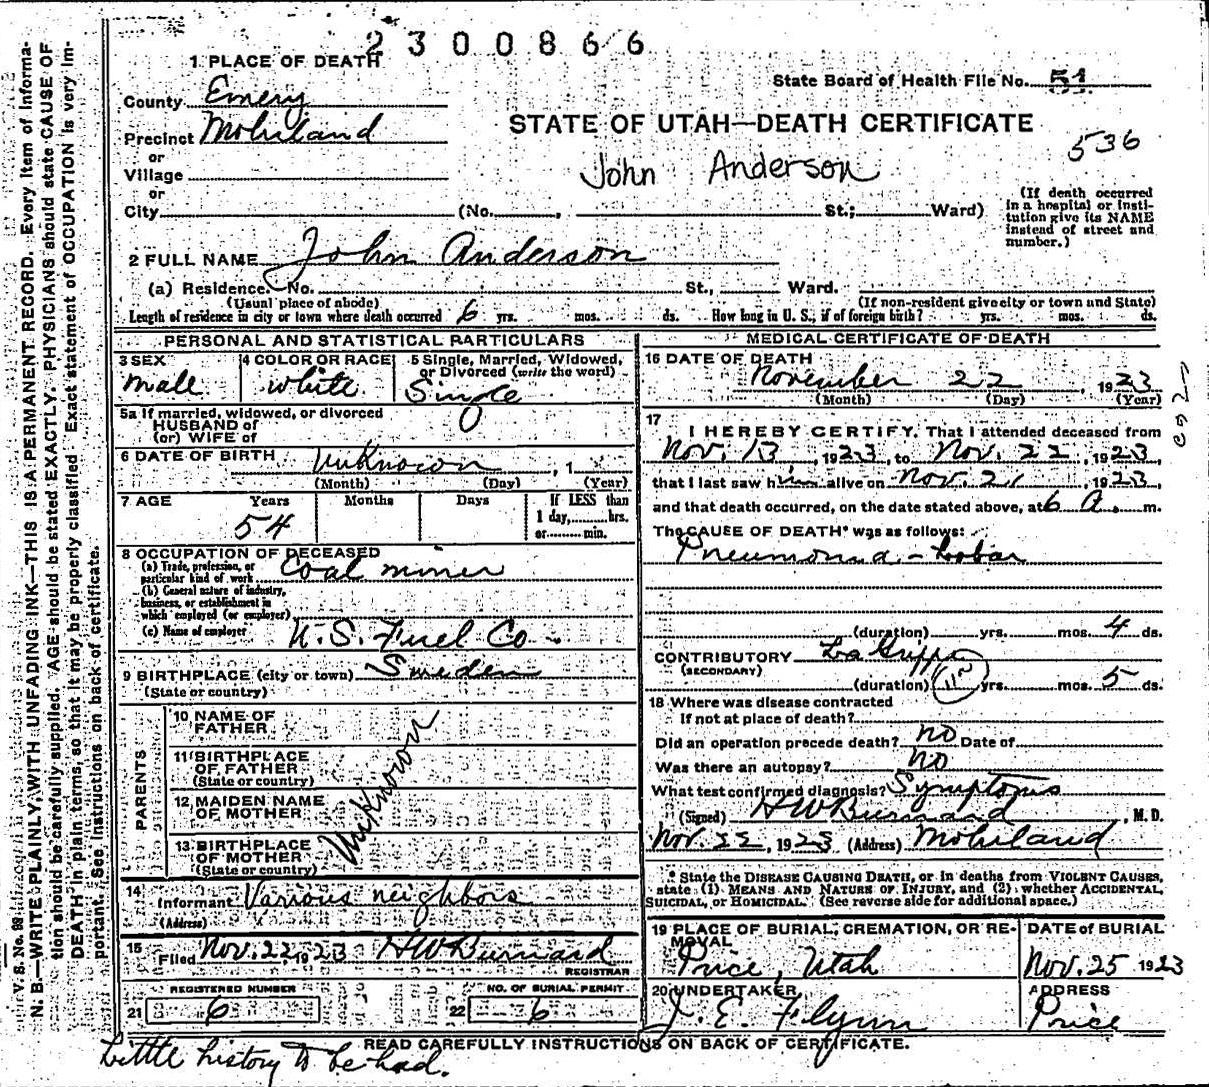 2300866
1 PLACE OF DEATH
State Board of Health File No. 51
County Emery
STATE OF UTAH—DEATH CERTIFICATE
536
Precinct Mohrland
or
Village
John Anderson
or
City (No. , St.; Ward)
(If death occurred in a hospital or insti-
tution give its NAME
instead of street and
number.)
2 FULL NAME John Anderson
(a) Residence. No. St., Ward.
(Usual place of abode) (If non-resident give city or town and State)
Length of residence in city or town where death occurred 6 yrs. mos. ds. How long in U. S., if of foreign birth? yrs. mos. ds.
PERSONAL AND STATISTICAL PARTICULARS
3 SEX
male
4 COLOR OR RACE
white
5 Single, Married, Widowed,
or Divorced (write the word)
Single
5a If married, widowed, or divorced
HUSBAND of
(or) WIFE of
6 DATE OF BIRTH Unknown , 1
(Month) (Day) (Year)
7 AGE Years Months Days If LESS than
54 1 day, hrs.
or min.
8 OCCUPATION OF DECEASED
(a) Trade, profession, or
particular kind of work Coal miner
(b) General nature of industry,
business, or establishment in
which employed (or employer)
(c) Name of employer U.S. Fuel Co
9 BIRTHPLACE (city or town) Sweden
(State or country)
PARENTS
10 NAME OF
FATHER
11 BIRTHPLACE
OF FATHER
(State or country)
12 MAIDEN NAME
OF MOTHER
13 BIRTHPLACE
OF MOTHER
(State or country)
Unknown
14
Informant Various neighbors
(Address)
15
Filed Nov. 22, 1923 HWBurnard
REGISTRAR
REGISTERED NUMBER NO. OF BURIAL PERMIT
21 6 22 6
MEDICAL CERTIFICATE OF DEATH
16 DATE OF DEATH
November 22 , 1923
(Month) (Day) (Year)
17
I HEREBY CERTIFY, That I attended deceased from
Nov. 13 , 1923, to Nov. 22 , 1923,
that I last saw him alive on Nov. 21 , 1923,
and that death occurred, on the date stated above, at 6 A. m.
The CAUSE OF DEATH* was as follows:
Pneumonia - Lobar
(duration) yrs. mos. 4 ds.
CONTRIBUTORY La Grippe
(SECONDARY)
(duration) yrs. mos. 5 ds.
18 Where was disease contracted
If not at place of death?
Did an operation precede death? no Date of
Was there an autopsy? no
What test confirmed diagnosis? Symptoms
(Signed) HWBurnard , M. D.
Nov. 22, 1923 (Address) Mohrland
* State the DISEASE CAUSING DEATH, or in deaths from VIOLENT CAUSES,
state (1) MEANS AND NATURE OF INJURY, and (2) whether ACCIDENTAL,
SUICIDAL, or HOMICIDAL. (See reverse side for additional space.)
19 PLACE OF BURIAL, CREMATION, OR RE-
MOVAL
Price, Utah
DATE of BURIAL
Nov. 25 1923
20 UNDERTAKER
J. E. Flynn
ADDRESS
Price
READ CAREFULLY INSTRUCTIONS ON BACK OF CERTIFICATE.
Little history to be had.
V. S. No. 98
N. B.—WRITE PLAINLY, WITH UNFADING INK—THIS IS A PERMANENT RECORD. Every item of informa-
tion should be carefully supplied. AGE should be stated EXACTLY. PHYSICIANS should state CAUSE OF
DEATH in plain terms, so that it may be properly classified. Exact statement of OCCUPATION is very im-
portant. See instructions on back of certificate.